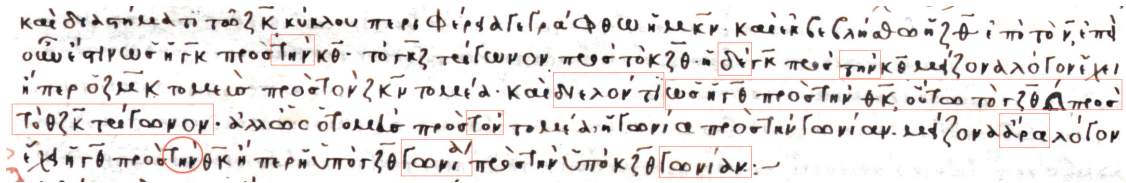 καὶ διαστήματι τοῦ ζκ κύκλου περιφέρεια γεγράφθω ἡ μκν· καὶ ἐκβεβλήσθω ἡ ζθ ἐπὶ τὸ ν, ἐπεὶ
οὖν ἐστιν ὡς ἡ γκ πρὸς τὴν κθ· τὸ γκζ τρίγωνον πρὸς τὸ κζθ· ἡ δὲ γκ πρὸς τὴν κθ μείζονα λόγον ἔχει
ἤπερ ὁ ζμκ τομεὺς πρὸς τὸν ζκν τομέα· καὶ διελόντι ὡς ἡ γθ πρὸς τὴν θκ, οὕτω τὸ γζθ πρὸς
τὸ θζκ τρίγωνον· ἀλλ' ὡς ὁ τομεὺς πρὸς τὸν τομέα, ἡ γωνία πρὸς τὴν γωνίαν. μείζονα ἄρα λόγον
ἔχει ἡ γθ πρὸς τὴν θκ ἤπερ ἡ ὑπὸ γζθ γωνία πρὸς τὴν ὑπὸ κζθ γωνίαν:~